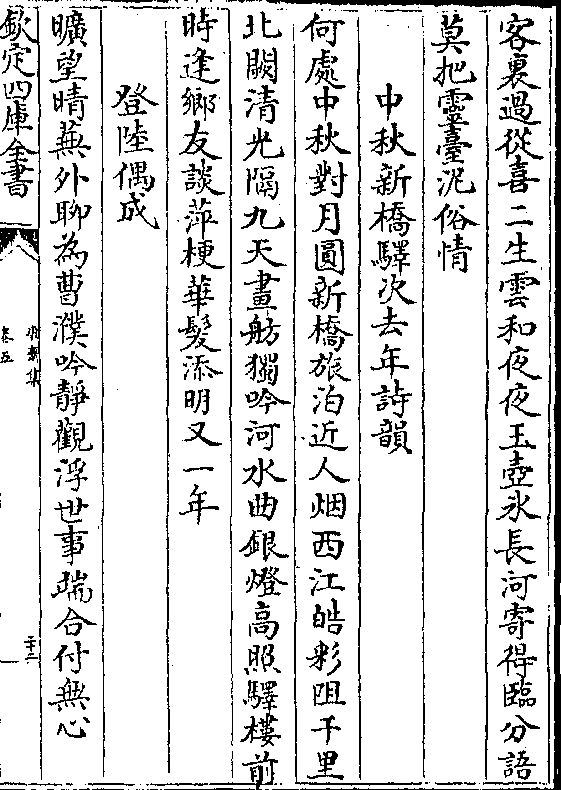 客裏過從喜二生雲和夜夜玉壺氷長河寄得臨分語
莫把靈臺汎俗情
中秋新橋驛次去年詩韻
何處中秋對月圓新橋旅泊近人烟西江皓彩阻千里
北闕清光隔九天畫舫獨吟河水曲銀燈高照驛樓前
時逢鄉友談萍梗華髮添明又一年
登陸偶成
曠望晴蕪外聊為曹濮吟靜觀浮世事端合付無心
欽定四庫全書
卷五
二十二